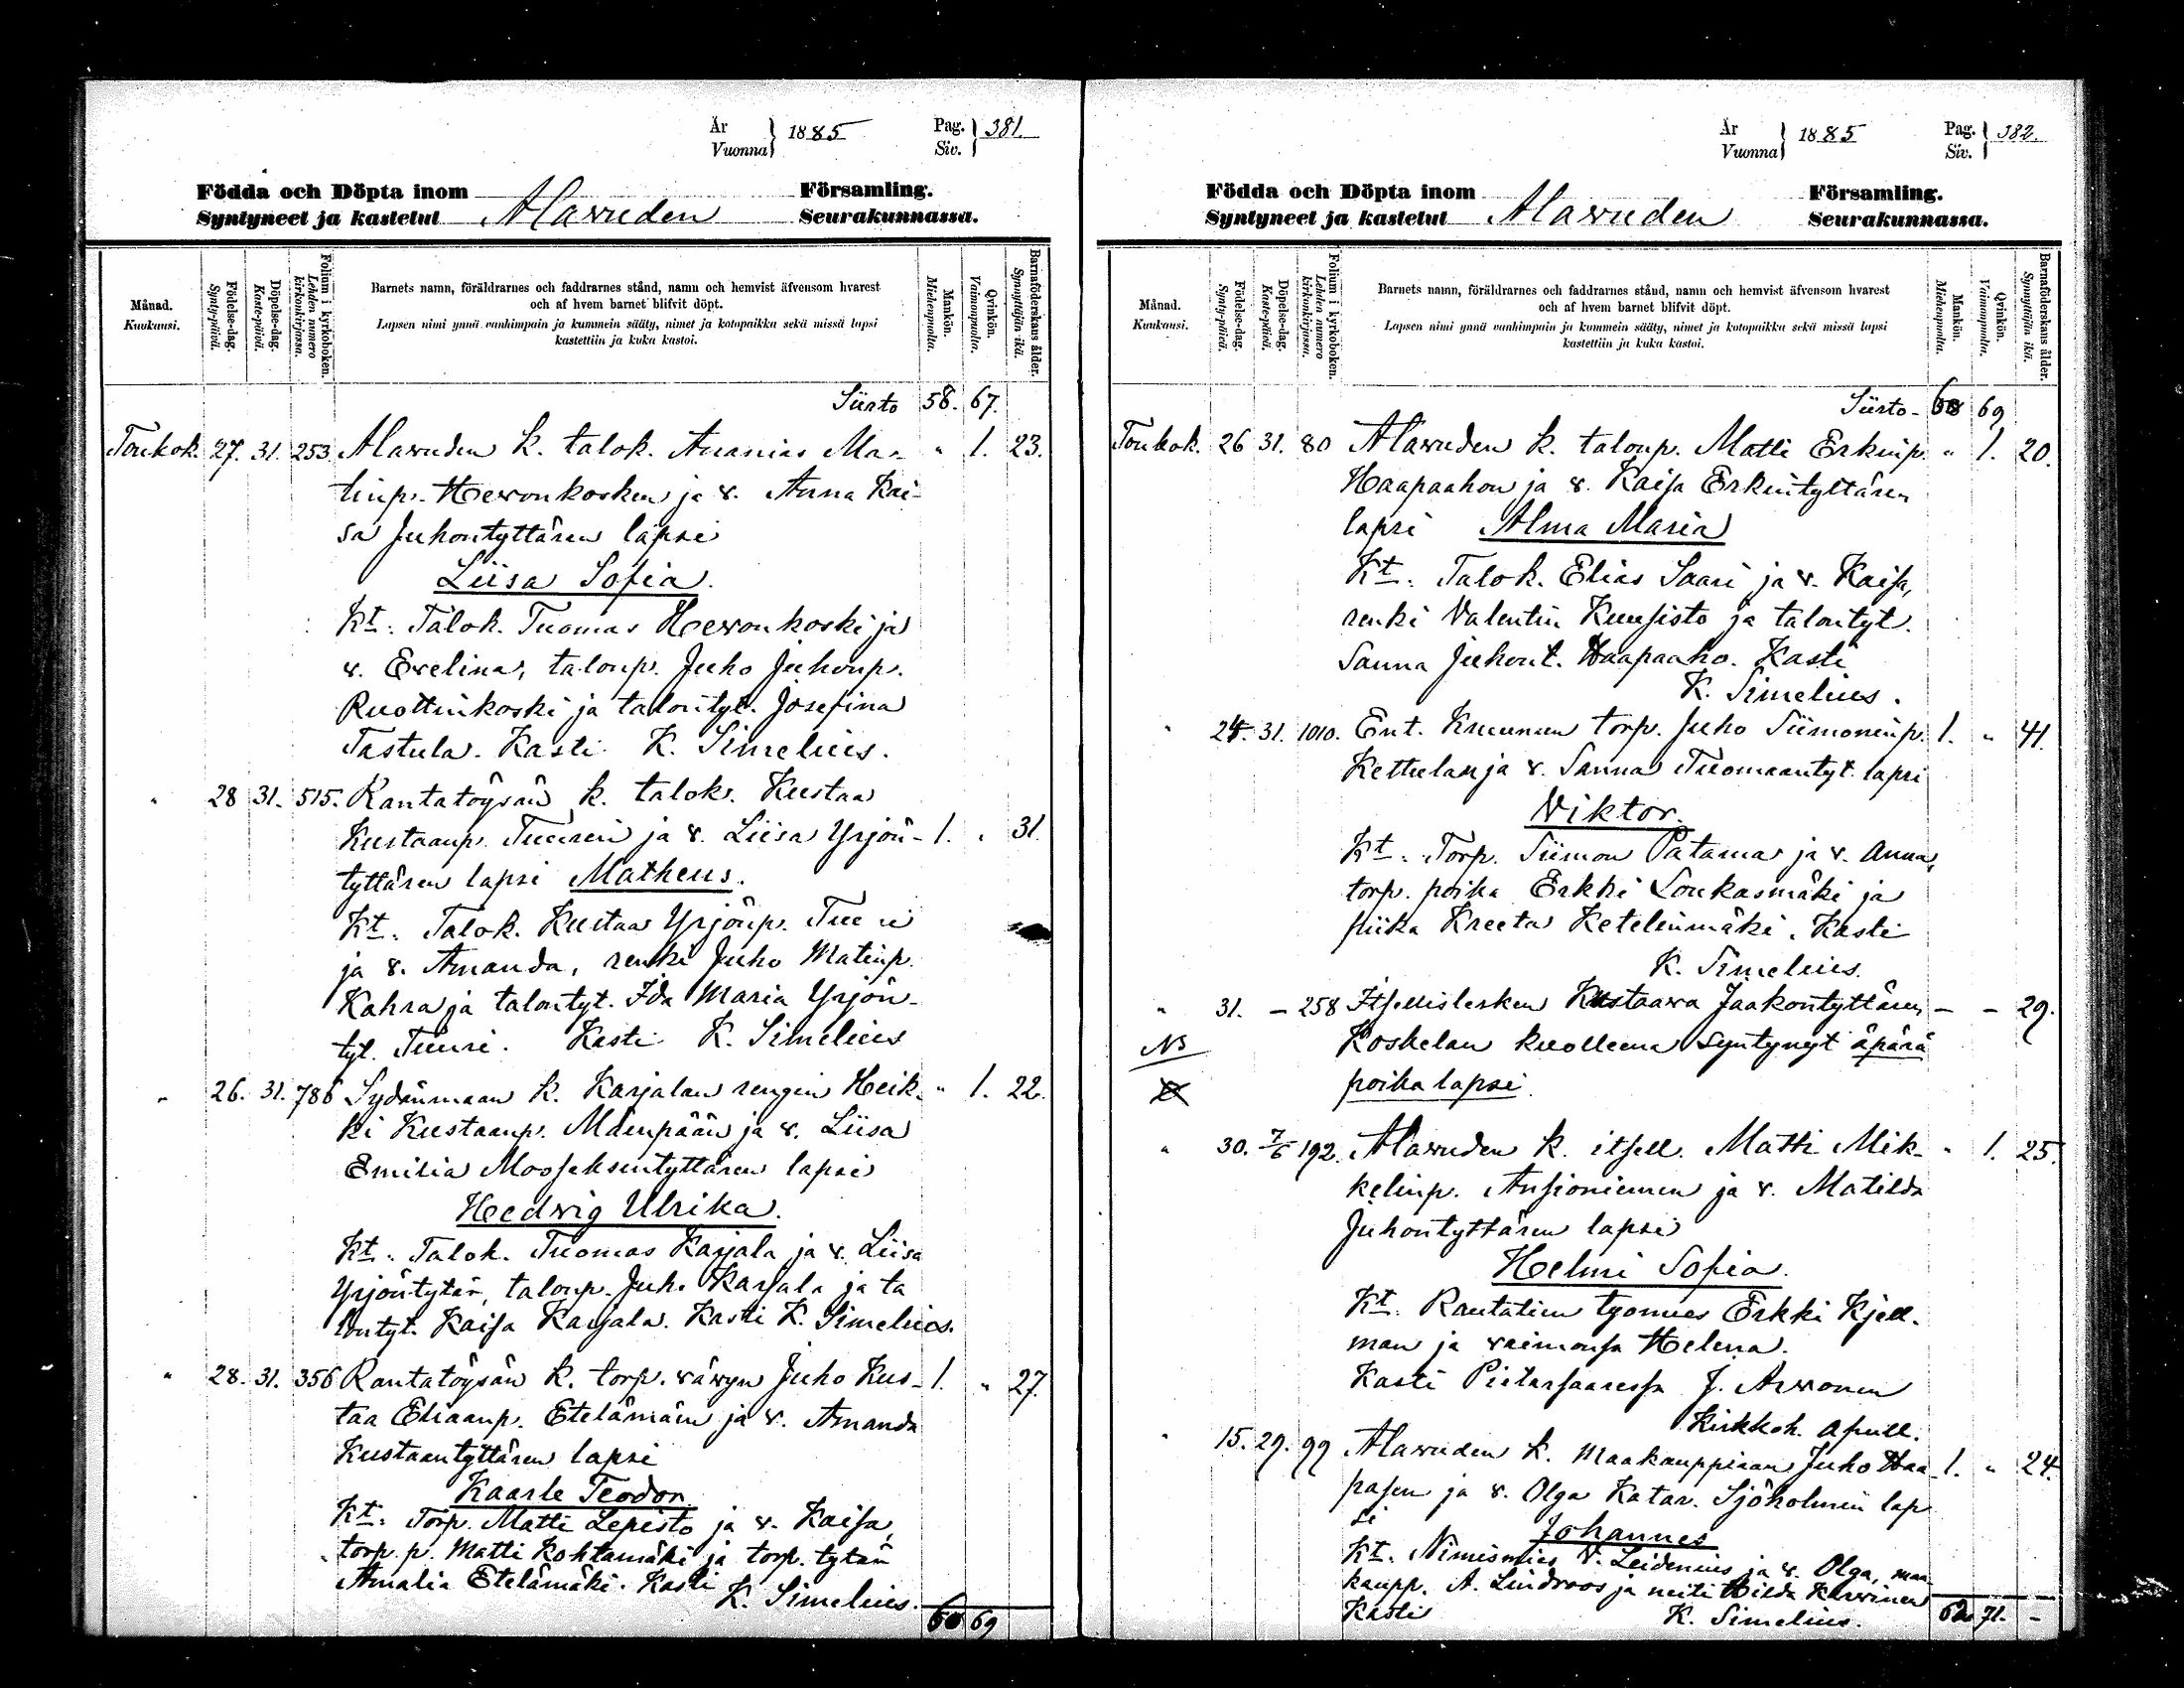 År Vuonna } 1885 Pag. Siv. } 381.
Födda och Döpta inom Församling.
Syntyneet ja kastetut Alavuden Seurakunnassa.
Månad. Kuukausi.
Födelse-dag. Synty-päivä.
Döpelse-dag. Kaste-päivä.
Folium i kyrkoboken. Lehden numero kirkonkirjassa.
Barnets namn, föräldrarnes och faddrarnes stånd, namn och hemvist äfvensom hvarest
och af hvem barnet blifvit döpt.
Lapsen nimi ynnä vanhimpain ja kummein sääty, nimet ja kotopaikka sekä missä lapsi
kastettiin ja kuka kastoi.
Mankön. Miehenpuolta.
Qvinkön. Vaimonpuolta.
Barnaföderskans ålder. Synnyttäjän ikä.
Siirto 58. 67.
Toukok. 27. 31. 253. Alavuden k. talok. Ananias Ma- " 1. 23.
tinp. Hewonkosken ja v. Anna Kai-
sa Juhontyttären lapsi
Liisa Sofia.
Kt: Talok. Tuomas Hewonkoski ja
v. Evelina, talonp. Juho Juhonp.
Ruottinkoski ja talontyt. Josefina
Tastula. Kasti K. Simelius.
" 28 31. 515. Rantatöysän k. talok. Kustaa
Kustaanp. Tuurin ja v. Liisa Yrjön- 1. " 31.
tyttären lapsi Matheus.
Kt: Talok. Kustaa Yrjönp. Tuuri
ja v. Amanda, renki Juho Matinp.
Kahra ja talontyt. Ida Maria Yrjön-
tyt. Tuuri. Kasti K. Simelius
" 26. 31. 786 Sydänmaan k. Karjalan rengin Heik- " 1. 22.
ki Kustaanp. Mäenpään ja v. Liisa
Emilia Mooseksentyttären lapsi
Hedvig Ulrika.
Kt: Talok. Tuomas Karjala ja v. Liisa
Yrjöntytär, talonp. Juho Karjala ja ta
lontyt. Kaisa Karjala. Kasti K. Simelius.
" 28. 31. 356 Rantatöysän k. torp. vävyn Juho Kus- 1. " 27.
taa Eliaanp. Etelämäen ja v. Amanda
Kustaantyttären lapsi
Kaarle Teodor
Kt: Torp. Matti Lepistö ja v. Kaisa,
torp. p. Matti Kohtamäki ja torp. tytär
Amalia Etelämäki. Kasti
K. Simelius.
60 69
År Vuonna } 1885 Pag. Siv. } 382.
Födda och Döpta inom Församling.
Syntyneet ja kastetut Alavuden Seurakunnassa.
Månad. Kuukausi.
Födelse-dag. Synty-päivä.
Döpelse-dag. Kaste-päivä.
Folium i kyrkoboken. Lehden numero kirkonkirjassa.
Barnets namn, föräldrarnes och faddrarnes stånd, namn och hemvist äfvensom hvarest
och af hvem barnet blifvit döpt.
Lapsen nimi ynnä vanhimpain ja kummein sääty, nimet ja kotopaikka sekä missä lapsi
kastettiin ja kuka kastoi.
Mankön. Miehenpuolta.
Qvinkön. Vaimonpuolta.
Barnaföderskans ålder. Synnyttäjän ikä.
Siirto - 60 69
Toukok. 26 31. 80 Alavuden k. talonp. Matti Erkinp. " 1. 20.
Haapaahon ja v. Kaisa Erkintyttären
lapsi Alma Maria
Kt: Talok. Elias Saari ja v. Kaisa,
renki Valentin Kuusisto ja talontyt.
Sanna Juhont. Haapaaho. Kasti
K. Simelius.
" 24. 31. 1010. Ent. Kruunun torp. Juho Siimoninp. 1. " 41.
Kettulan ja v. Sanna Tuomaantyt. lapsi
Viktor.
Kt: Torp. Siimon Patama ja v. Anna,
torp. poika Erkki Loukasmäki ja
piika Kreeta Ketelinmäki. Kasti
K. Simelius.
" 31. - 258 Itsellislesken Kustaava Jaakontyttären - - 29.
NB Koskelan kuolleena syntynyt äpärä
poika lapsi.
" 30. 7/6 192. Alavuden k. itsell. Matti Mik- " 1. 25.
kelinp. Ansioniemen ja v. Matilda
Juhontyttären lapsi
Helmi Sofia.
Kt: Rautatien työmies Erkki Kjell-
man ja vaimonsa Helena.
Kasti Pietarsaaressa J. Arvonen
Kirkkoh. apull.
" 15. 29. 99 Alavuden k. Maakauppiaan Juho Haa 1. " 24.
pasen ja v. Olga Katar. Sjöholmin lap
si Johannes
Kt: Nimismies V. Leidenius ja v. Olga, maa-
kaupp. A. Lindroos ja neiti Hilda Karvinen
Kasti K. Simelius.
62 71. -